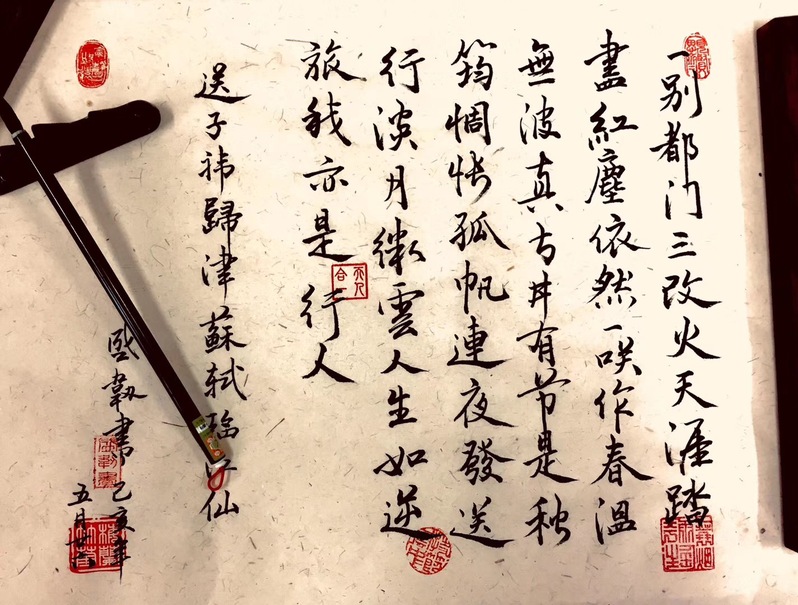 一别都门三改火天涯踏
盡紅塵依然一咲作春温
無波真古井有节是秋
筠惆悵孤帆連夜發送
行淡月微雲人生如逆
旅我亦是行人
送子祎歸津蘇轼临江仙
書己亥年
五月廿六